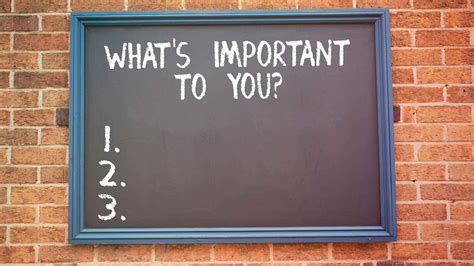 WHAT'S IMPORTANT
TO YOU?
1.
2.
3.